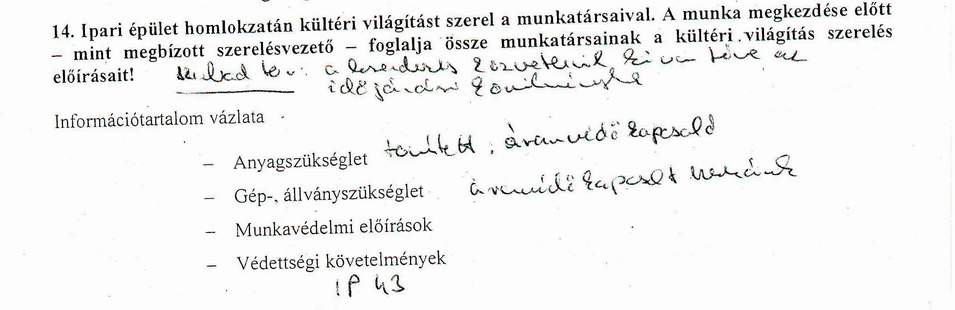 14. Ipari épület homlokzatán kültéri világítást szerel a munkatársaival. A munka megkezdése előtt
– mint megbízott szerelésvezető – foglalja össze munkatársainak a kültéri világítás szerelés
előírásait! Szabad tér: a berendezés közvetlenül ki van téve az
időjárási körülményke
Információtartalom vázlata
– Anyagszükséglet tömített, áramvédő kapcsoló
– Gép-, állványszükséglet áramvédő kapcsolt
– Munkavédelmi előírások
– Védettségi követelmények
IP 43